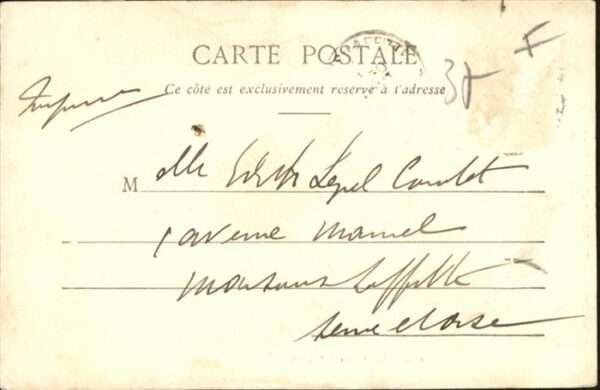 CARTE POSTALE
Ce côté est exclusivement réservé à l'adresse
37 F
Mlle Edith Lepel Cointet
1 avenue
Maisons Laffitte
Seine et Oise